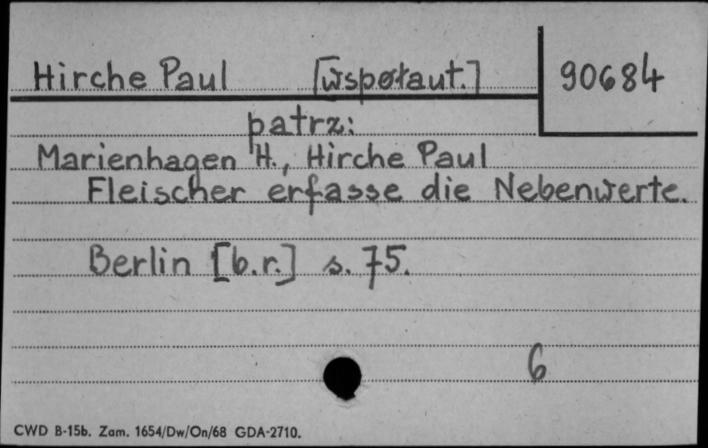 Hirche Paul [wspołaut.] 90684
patrz:
Marienhagen H., Hirche Paul
Fleischer erfasse die Nebenwerte.
Berlin [b.r.] s. 75.
6
CWD B-15b. Zam. 1654/Dw/On/68 GDA-2710.